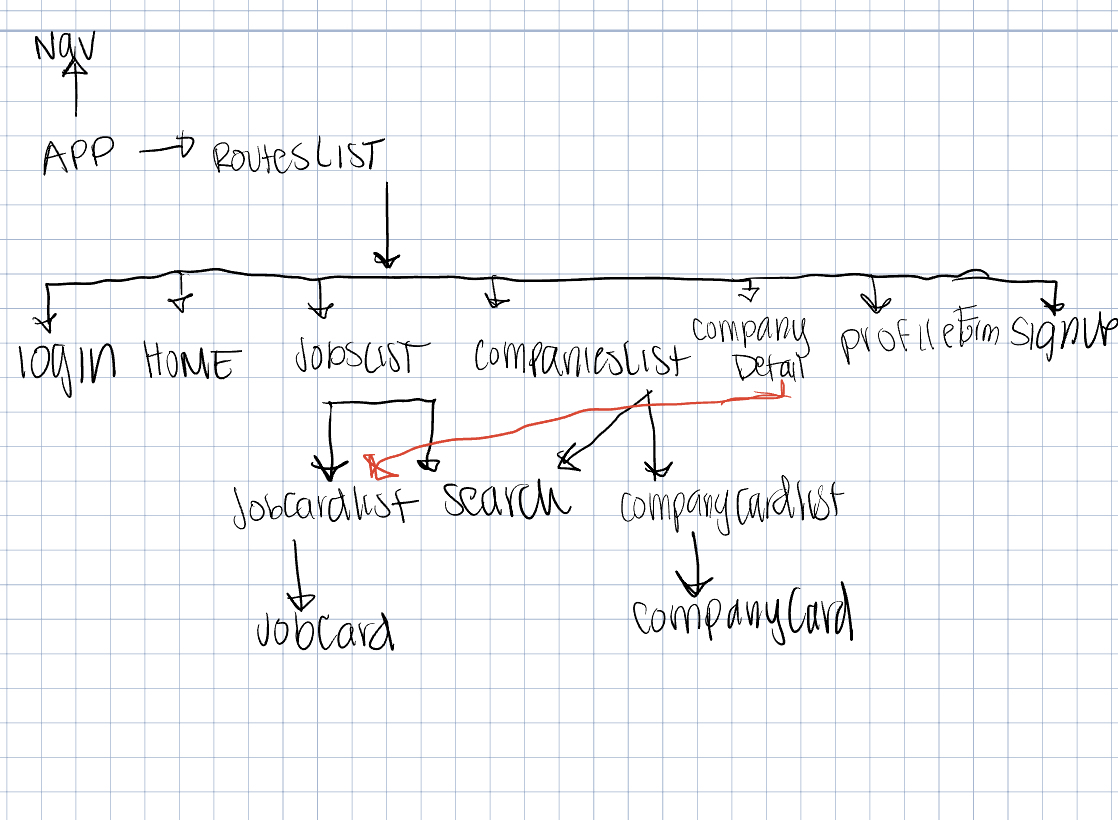 Nav
APP
ROUTESLIST
Login
HOME
JOBSLIST
COMPANIESLIST
company
Detail
profileForm
signup
Jobcardlist
search
companycardlist
Jobcard
companycard